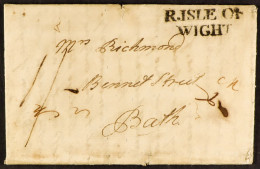 R.ISLE OF
WIGHT
Mrs Richmond
Bennet Street
Bath